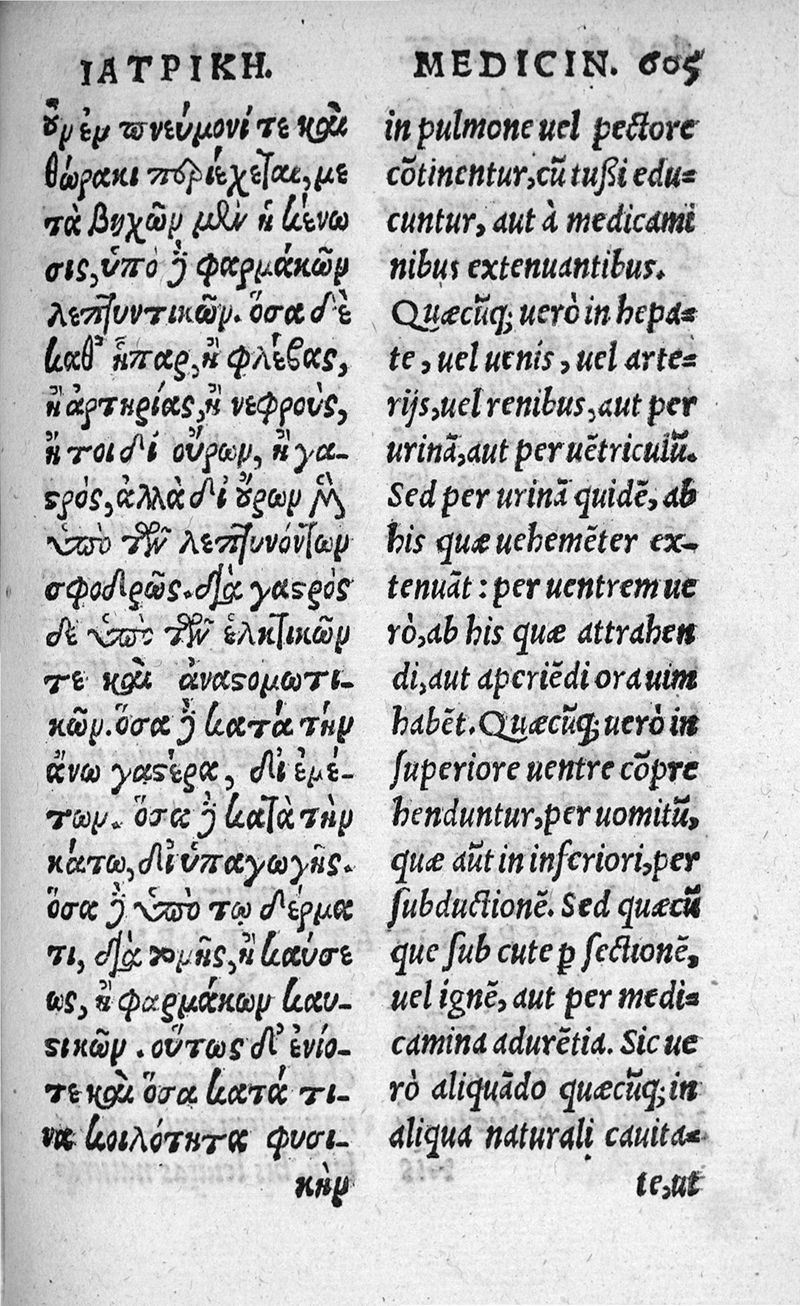 ΙΑΤΡΙΚΗ.
ȣν ἐν πνεύμονί τε καὶ
θώρακι περιέχεται, με
τὰ βηχῶν μὲν ἡ κένω
σις, ὑπὸ δὲ φαρμάκων
λεπτυντικῶν. ὅσα δὲ
καθ᾽ ἧπαρ, ἢ φλέβας,
ἢ ἀρτηρίας, ἢ νεφροὺς,
ἤτοι δι οὔρων, ἢ γα-
ϛρός, ἀλλὰ δι ȣ̓́ρων μὲν
ὑπὸ τῶν λεπτυνόντων
σφοδρῶς. διὰ γαϛρὸς
δὲ ὑπὸ τῶν ἑλκτικῶν
τε καὶ ἀναϛομωτι-
κῶν. ὅσα δὲ κατὰ τὴν
ἄνω γαϛέρα, δι ἐμέ-
των. ὅσα δὲ κατὰ τὴν
κάτω, δι ὑπαγωγῆς.
ὅσα δὲ ὑπὸ τῳ δέρμα
τι, διὰ τομῆς, ἢ καύσε
ως, ἢ φαρμάκων καυ-
ϛικῶν. οὕτως δ᾽ ἐνίο-
τε καὶ ὅσα κατά τι-
να κοιλότητα φυσι-
κὴν
MEDICIN. 605
in pulmone uel pectore
cōtinentur, cū tußi edu-
cuntur, aut à medicami
nibus extenuantibus.
Quæcūq; uerò in hepa-
te, uel uenis, uel arte-
rijs, uel renibus, aut per
urinā, aut per uētriculū.
Sed per urinā quidē, ab
his quæ uehemēter ex-
tenuāt: per uentrem ue
rò, ab his quæ attrahen
di, aut aperiēdi ora uim
habēt. Quæcūq; uerò in
ſuperiore uentre cōpre
henduntur, per uomitū,
quæ aūt in inferiori, per
ſubductionē. Sed quæcū
que ſub cute ꝑ ſectionē,
uel ignē, aut per medi-
camina adurētia. Sic ue
rò aliquādo quæcūq; in
aliqua naturali cauita-
te, ut